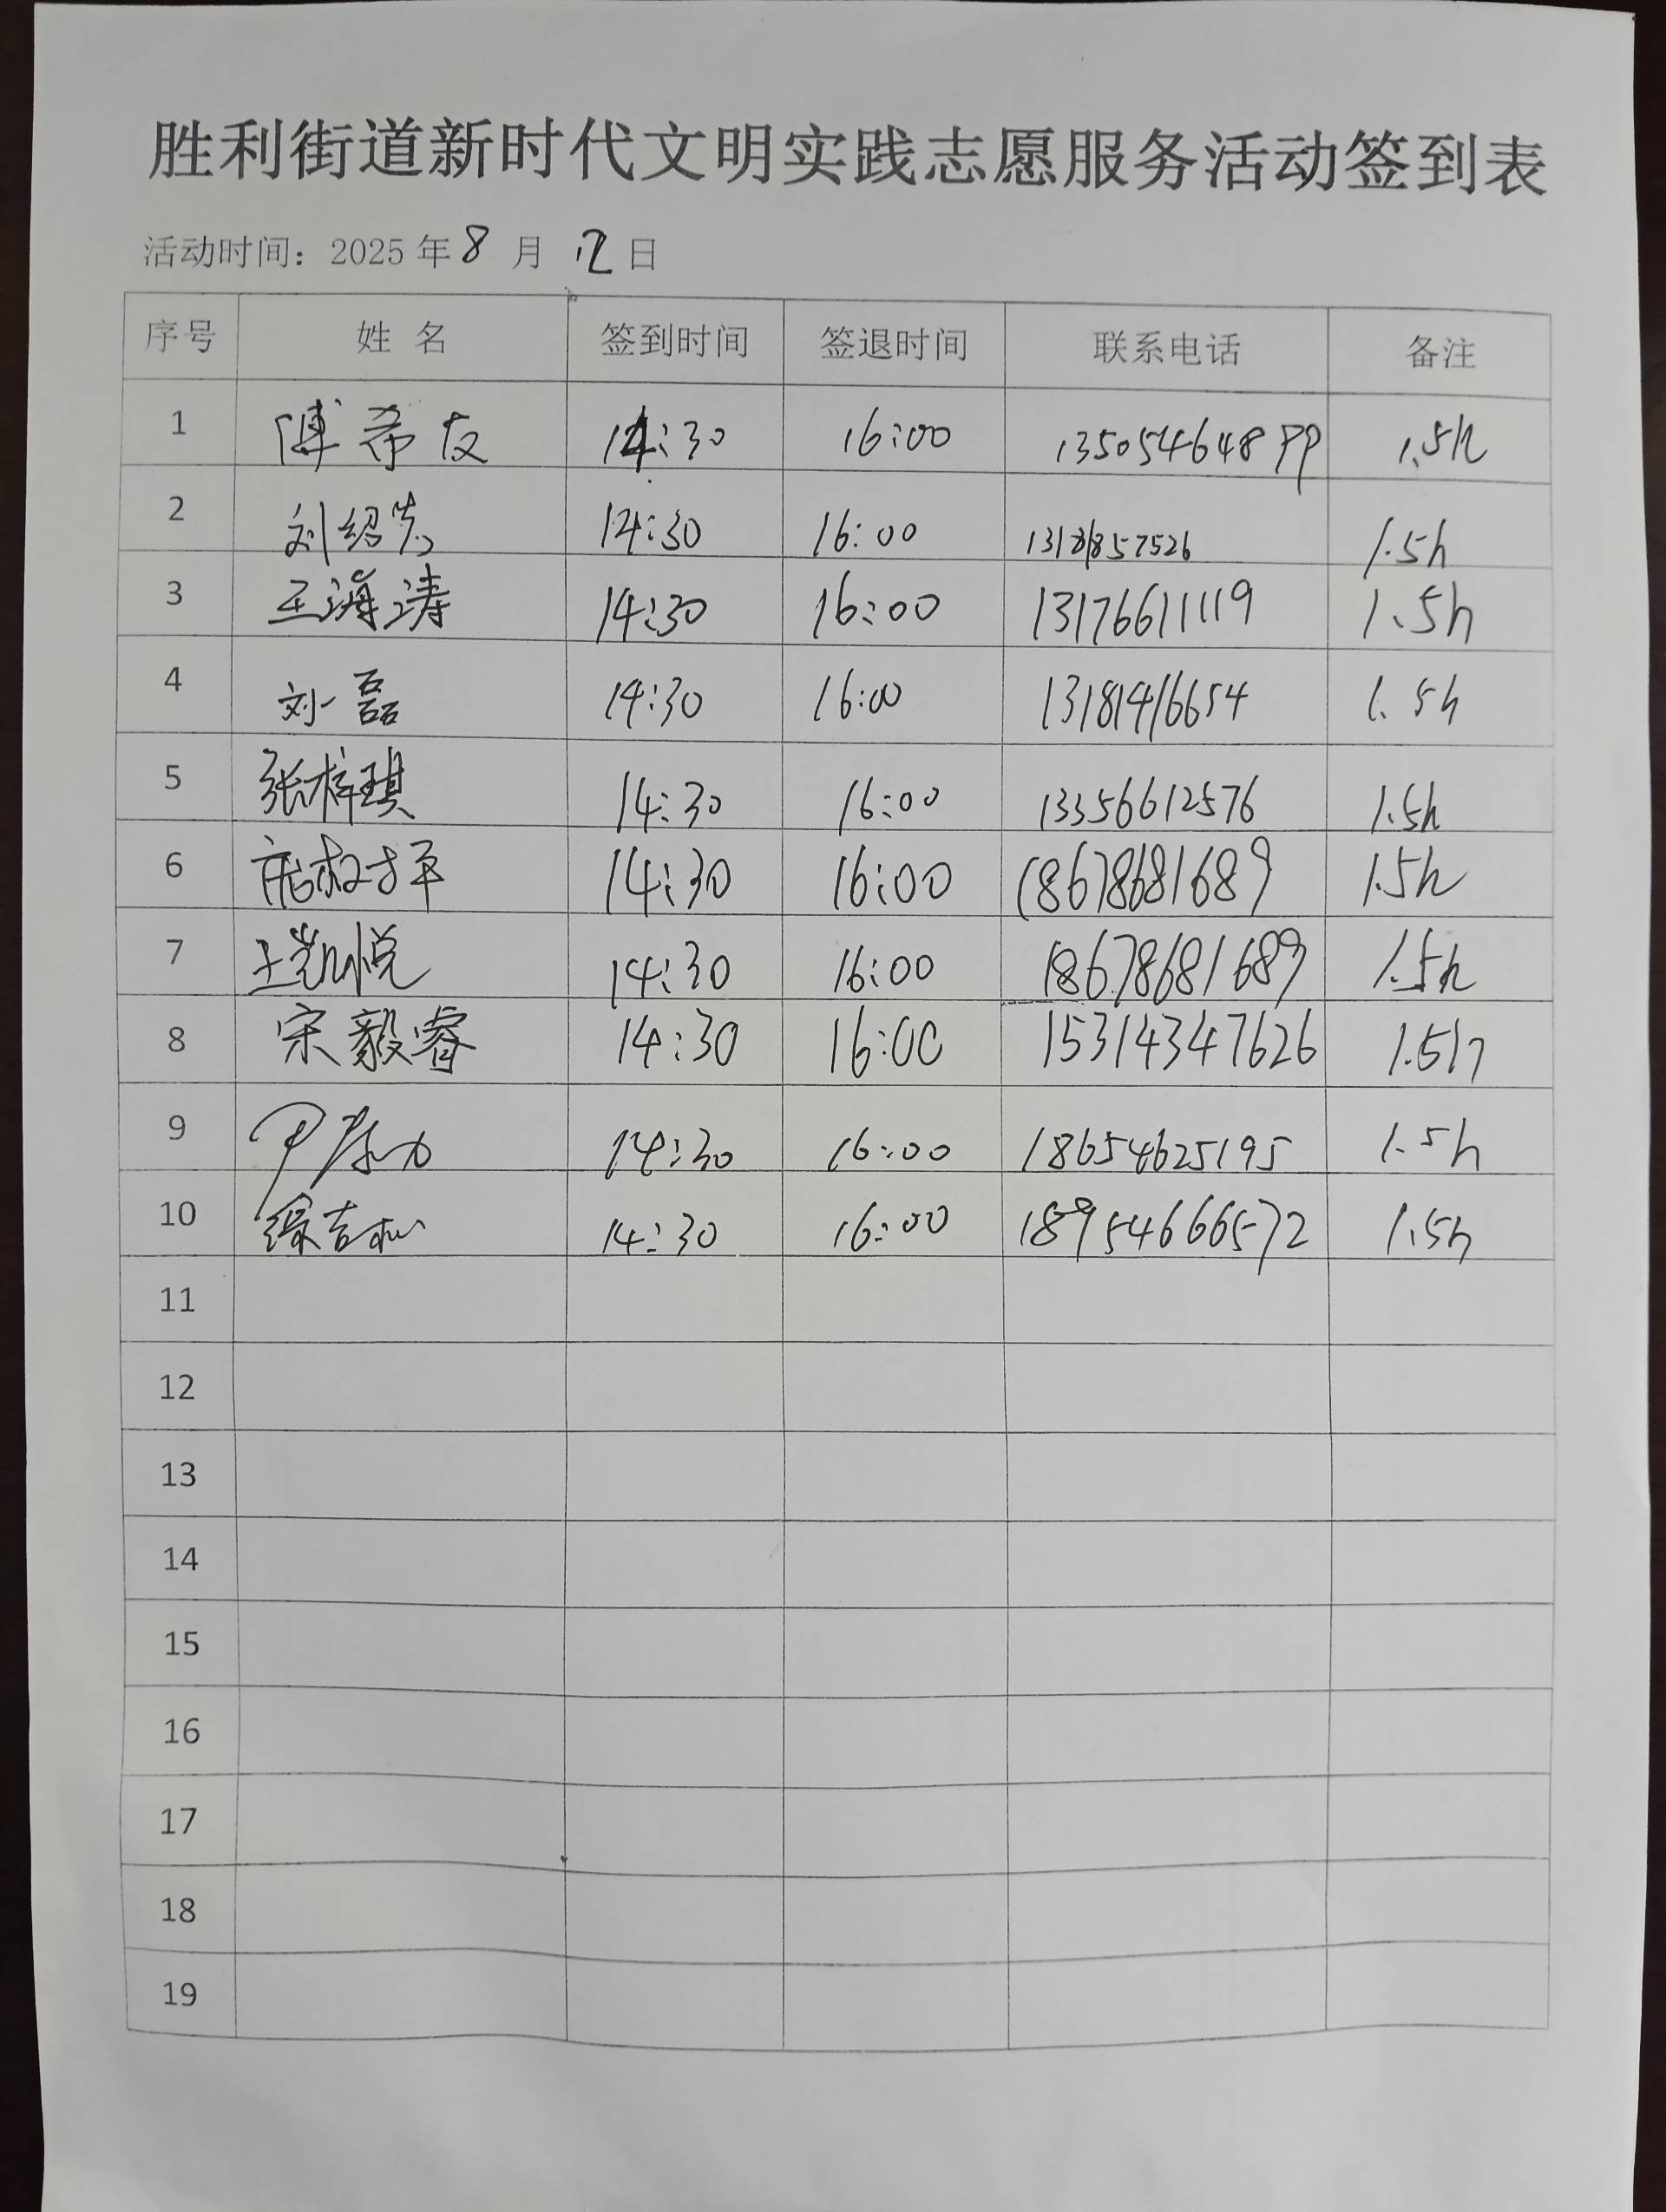 胜利街道新时代文明实践志愿服务活动签到表
活动时间：2025年8月12日
序号 姓名 签到时间 签退时间 联系电话 备注
1 傅希友 14:30 16:00 135054648 1.5h
2 刘绍 14:30 16:00 13181857526 1.5h
3 王海涛 14:30 16:00 13176611119 1.5h
4 刘磊 14:30 16:00 13181416654 1.5h
5 张梓琪 14:30 16:00 13356612576 1.5h
6 14:30 16:00 18678681689 1.5h
7 王凯悦 14:30 16:00 18678681689 1.5h
8 宋毅睿 14:30 16:00 15314347626 1.5h
9 尹 14:30 16:00 18654625195 1.5h
10 14:30 16:00 18954666572 1.5h
11
12
13
14
15
16
17
18
19